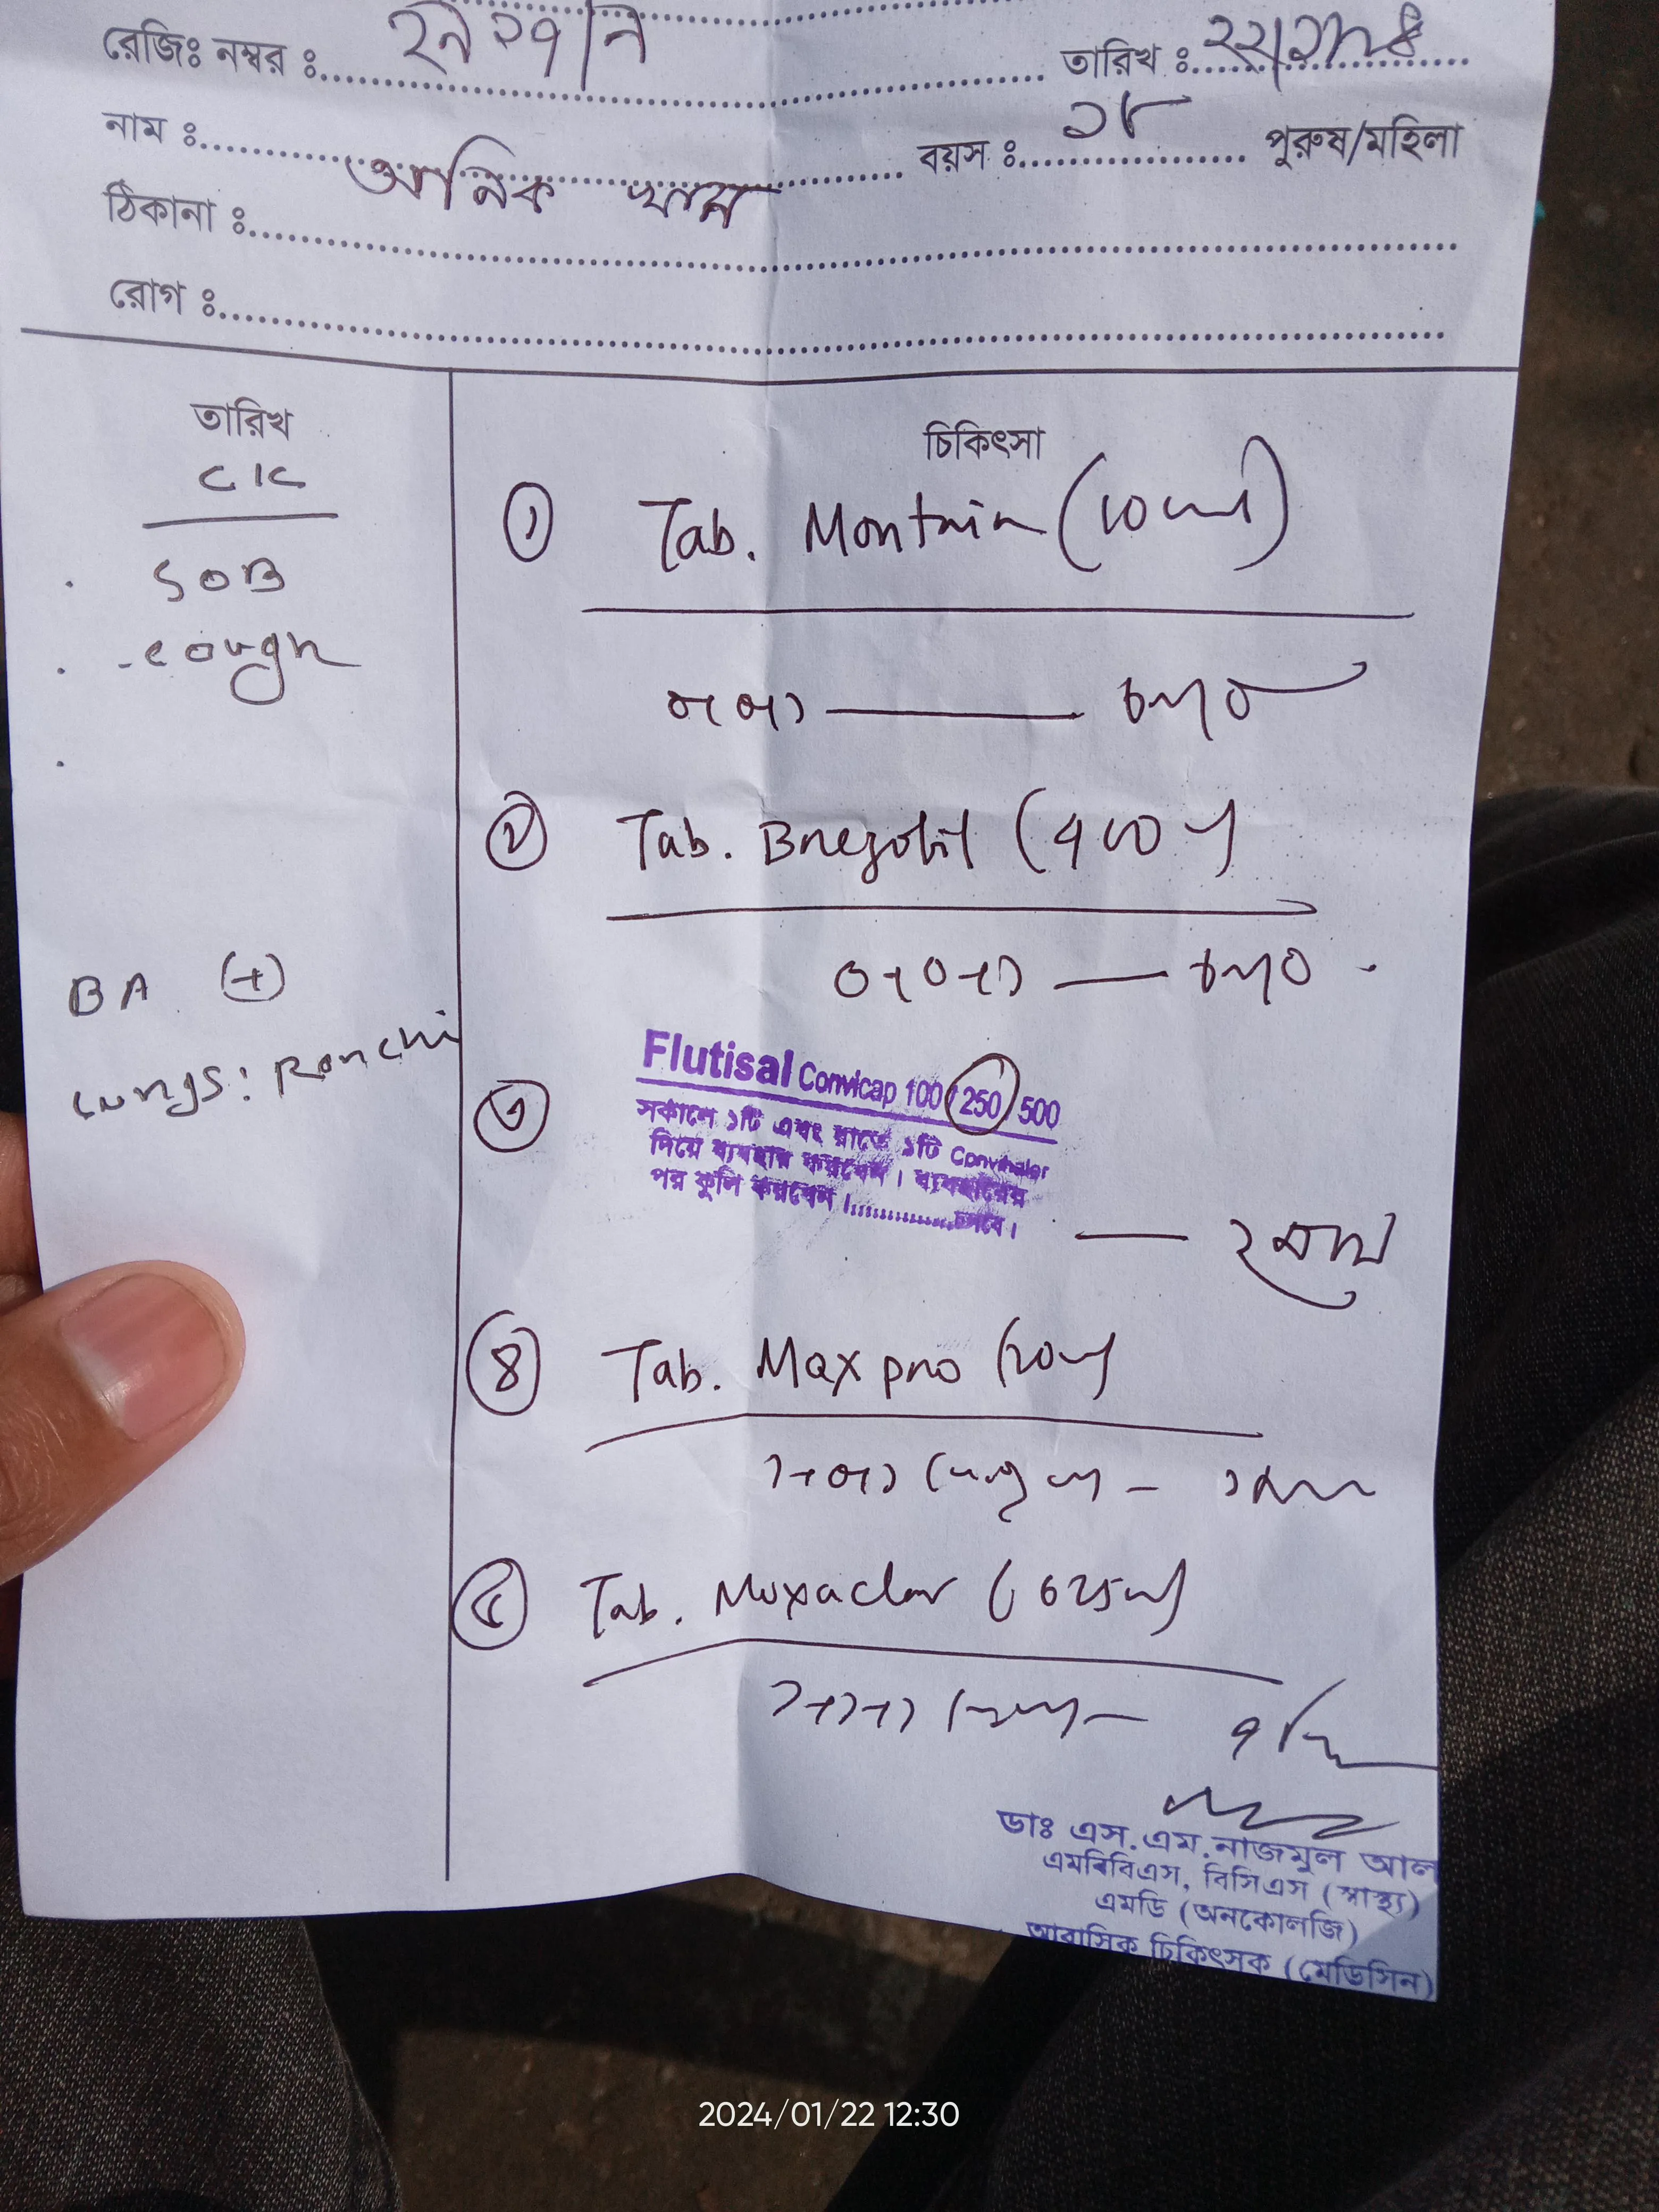 রেজিঃ নম্বর ঃ
তারিখ ঃ
নাম ঃ আনিক খান
বয়স ঃ ১৮ পুরুষ/মহিলা
ঠিকানা ঃ
রোগ ঃ
তারিখ
C/C
SOB
- cough
BA (+)
Lungs: Ronchi
চিকিৎসা
১ Tab. Montair (10mg)
০+০+১
২ Tab.
০+০+১
৩ Flutisal Convicap 100/250/500
সকালে ১টি এবং রাতে ১টি Convihaler
দিয়ে ব্যবহার করবেন। ব্যবহারের
পর কুলি করবেন।..............চলবে।
— ২ মাস
৪ Tab. Maxpro (20mg)
১+০+১
৫ Tab. Moxaclav (625mg)
১+১+১
ডাঃ এস.এম.নাজমুল আল
এমবিবিএস, বিসিএস (স্বাস্থ্য)
এমডি (অনকোলজি)
আবাসিক চিকিৎসক (মেডিসিন)
2024/01/22 12:30